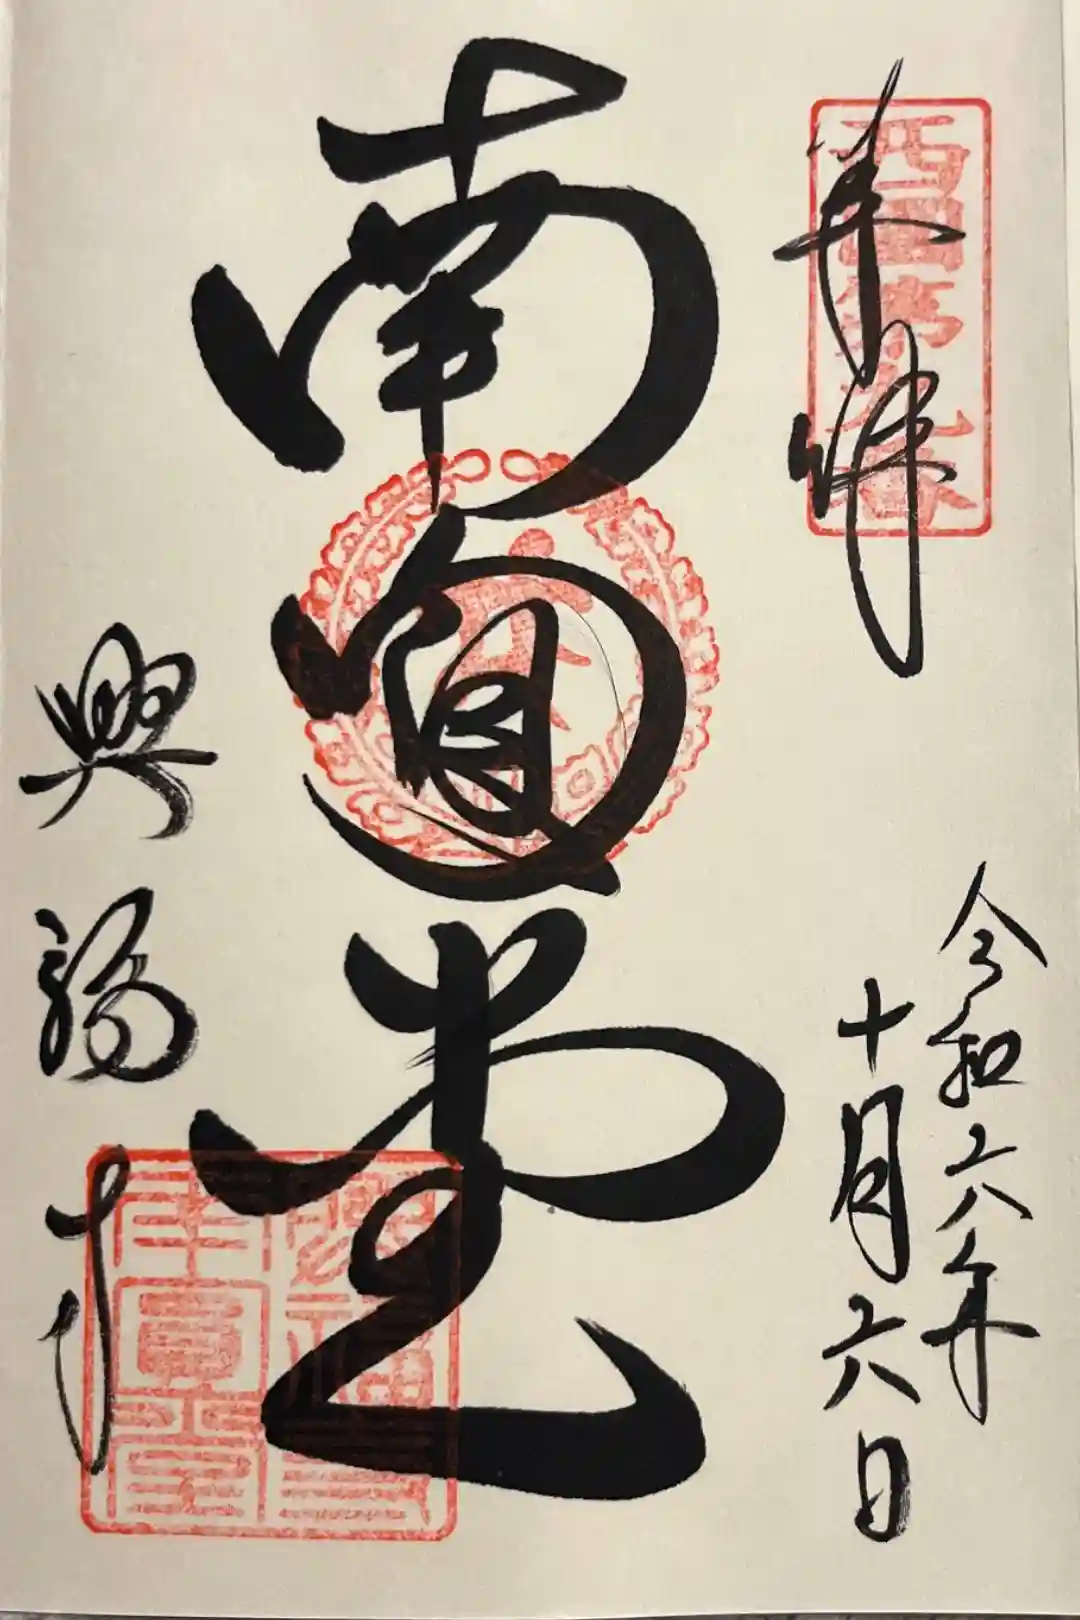 奉拝
西国第九番
令和六年
十月六日
南円堂
興福寺